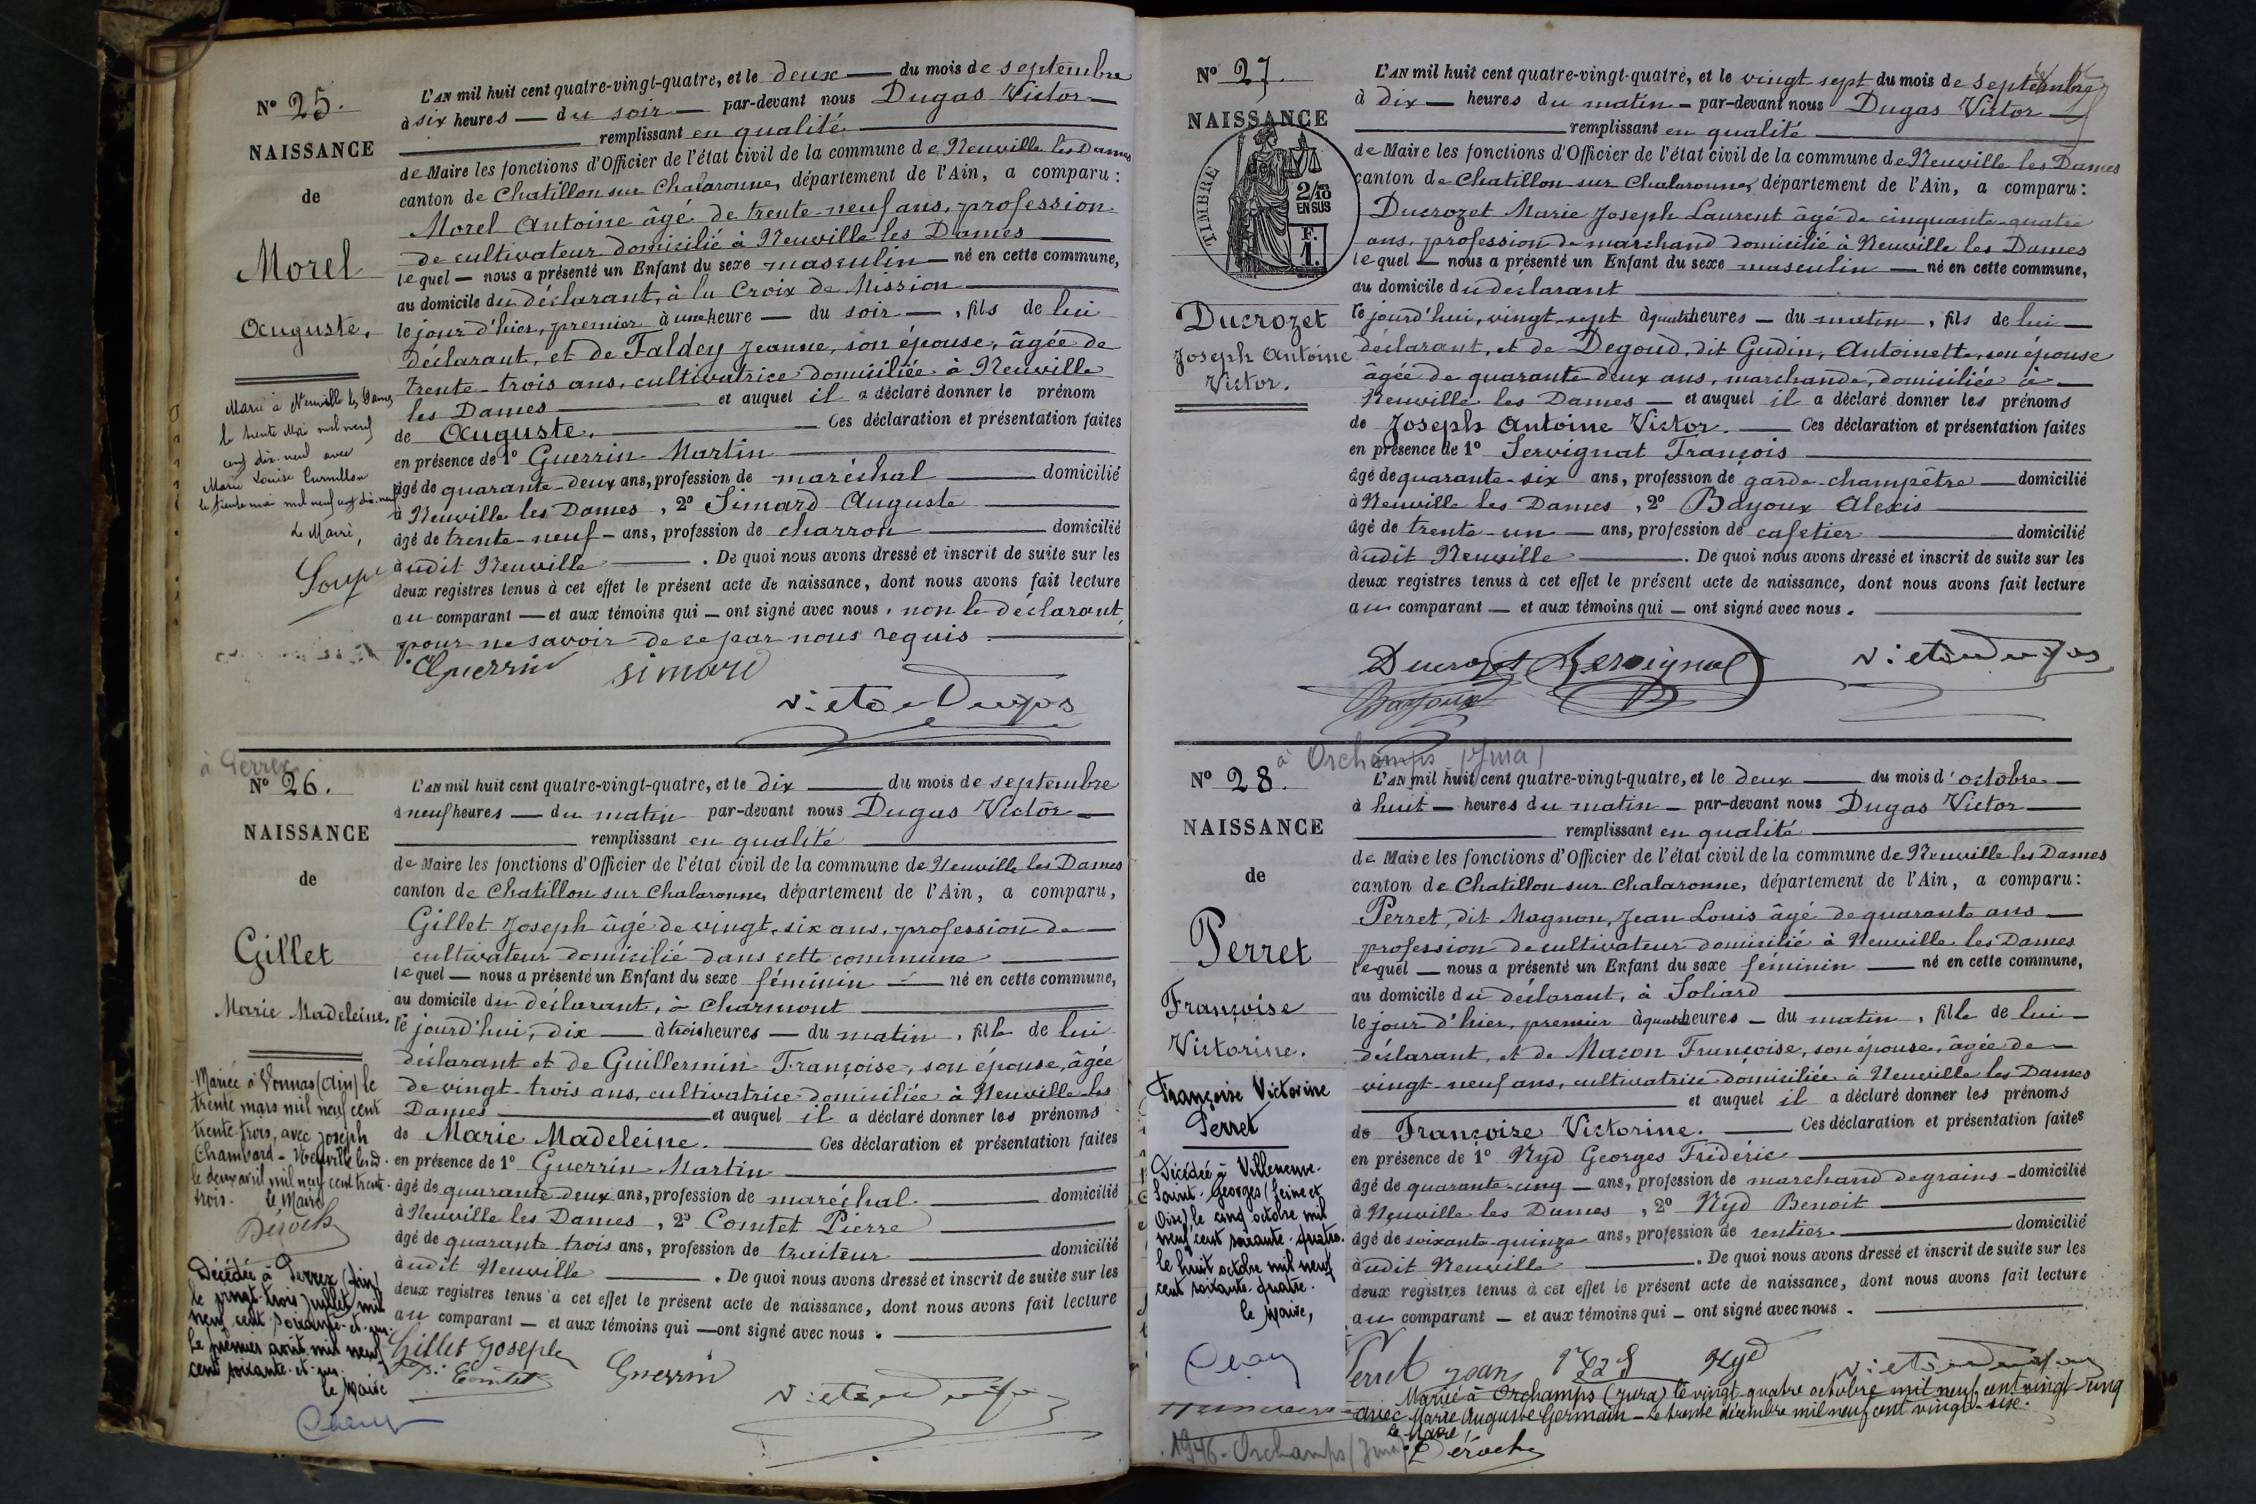 N° 25.
NAISSANCE
de
Morel
Auguste.
Marié à Neuville les Dames
le trente Mai mil neuf
cent dix-neuf avec
Marie Louise Curnillon
le trente mai mil neuf cent dix-neuf
Le Maire,
L'AN mil huit cent quatre-vingt-quatre, et le deux — du mois de septembre
à six heures — du soir — par-devant nous Dugas Victor —
remplissant en qualité
de Maire les fonctions d'Officier de l'état civil de la commune de Neuville les Dames
canton de Chatillon sur Chalaronne, département de l'Ain, a comparu :
Morel Antoine âgé de trente-neuf ans, profession
de cultivateur domicilié à Neuville les Dames
lequel — nous a présenté un Enfant du sexe masculin — né en cette commune,
au domicile du déclarant, à la Croix de Mission
le jour d'hier, premier à une heure — du soir —, fils de lui
déclarant, et de Faldey Jeanne, son épouse, âgée de
trente-trois ans, cultivatrice domiciliée à Neuville
les Dames — et auquel il a déclaré donner le prénom
de Auguste. — Ces déclaration et présentation faites
en présence de 1° Guerrin Martin
âgé de quarante-deux ans, profession de maréchal — domicilié
à Neuville les Dames, 2° Simard Auguste
âgé de trente-neuf — ans, profession de charron — domicilié
audit Neuville — . De quoi nous avons dressé et inscrit de suite sur les
deux registres tenus à cet effet le présent acte de naissance, dont nous avons fait lecture
au comparant — et aux témoins qui — ont signé avec nous, non le déclarant,
pour ne savoir de ce par nous requis.
Guerrin Simard
Victor Dugas
à Perrex
N° 26.
NAISSANCE
de
Gillet
Marie Madeleine.
Mariée à Vonnas (Ain) le
trente mars mil neuf cent
trente-trois, avec Joseph
Chambard - Neuville les D.
le deux avril mil neuf cent trente-
trois. le Maire
Déroche
Décédée à Perrex (Ain)
le vingt-trois juillet mil
neuf cent soixante-et-un.
le premier août mil neuf
cent soixante-et-un.
le Maire
L'AN mil huit cent quatre-vingt-quatre, et le dix — du mois de septembre
à neuf heures — du matin par-devant nous Dugas Victor —
remplissant en qualité
de Maire les fonctions d'Officier de l'état civil de la commune de Neuville les Dames
canton de Chatillon sur Chalaronne, département de l'Ain, a comparu,
Gillet Joseph âgé de vingt-six ans, profession de —
cultivateur domicilié dans cette commune
lequel — nous a présenté un Enfant du sexe féminin — né en cette commune,
au domicile du déclarant, à Charmont
le jourd'hui, dix — à trois heures — du matin, fille de lui
déclarant et de Guillermin Françoise, son épouse, âgée
de vingt-trois ans, cultivatrice domiciliée à Neuville les
Dames — et auquel il a déclaré donner les prénoms
de Marie Madeleine. — Ces déclaration et présentation faites
en présence de 1° Guerrin Martin
âgé de quarante-deux ans, profession de maréchal — domicilié
à Neuville les Dames, 2° Comtet Pierre
âgé de quarante-trois ans, profession de traiteur — domicilié
audit Neuville — . De quoi nous avons dressé et inscrit de suite sur les
deux registres tenus à cet effet le présent acte de naissance, dont nous avons fait lecture
au comparant — et aux témoins qui — ont signé avec nous.
Gillet Joseph Guerrin
Comtet Victor Dugas
N° 27.
NAISSANCE
TIMBRE
2/10
EN SUS
F.
1.
Ducrozet
Joseph Antoine
Victor.
L'AN mil huit cent quatre-vingt-quatre, et le vingt sept du mois de septembre
à dix — heures du matin — par-devant nous Dugas Victor —
remplissant en qualité
de Maire les fonctions d'Officier de l'état civil de la commune de Neuville les Dames
canton de Chatillon sur Chalaronne, département de l'Ain, a comparu :
Ducrozet Marie Joseph Laurent âgé de cinquante-quatre
ans, profession de marchand domicilié à Neuville les Dames
lequel — nous a présenté un Enfant du sexe masculin — né en cette commune,
au domicile du déclarant
le jourd'hui, vingt-sept à quatre heures — du matin, fils de lui —
déclarant, et de Degoud, dit Gudin, Antoinette, son épouse
âgée de quarante-deux ans, marchande, domiciliée à —
Neuville les Dames — et auquel il a déclaré donner les prénoms
de Joseph Antoine Victor. — Ces déclaration et présentation faites
en présence de 1° Servignat François
âgé de quarante-six ans, profession de garde-champêtre — domicilié
à Neuville les Dames, 2° Bayoux Alexis
âgé de trente-un — ans, profession de cafetier — domicilié
audit Neuville — . De quoi nous avons dressé et inscrit de suite sur les
deux registres tenus à cet effet le présent acte de naissance, dont nous avons fait lecture
au comparant — et aux témoins qui — ont signé avec nous.
Ducrozet Servignat Victor Dugas
Bayoux
à Orchamps (Jura)
N° 28.
NAISSANCE
de
Perret
Françoise
Victorine.
Françoise Victorine
Perret
Décédée à Villeneuve-
Saint-Georges (Seine et
Oise) le cinq octobre mil
neuf cent soixante-quatre.
le huit octobre mil neuf
cent soixante-quatre.
le Maire,
L'AN mil huit cent quatre-vingt-quatre, et le deux — du mois d'octobre —
à huit — heures du matin — par-devant nous Dugas Victor —
remplissant en qualité
de Maire les fonctions d'Officier de l'état civil de la commune de Neuville les Dames
canton de Chatillon sur Chalaronne, département de l'Ain, a comparu :
Perret, dit Magnon, Jean Louis âgé de quarante ans —
profession de cultivateur domicilié à Neuville les Dames
lequel — nous a présenté un Enfant du sexe féminin — né en cette commune,
au domicile du déclarant, à Soliard
le jour d'hier, premier à quatre heures — du matin, fille de lui —
déclarant, et de Macon Françoise, son épouse, âgée de —
vingt-neuf ans, cultivatrice domiciliée à Neuville les Dames
et auquel il a déclaré donner les prénoms
de Françoise Victorine. — Ces déclaration et présentation faites
en présence de 1° Nyd Georges Frédéric
âgé de quarante-cinq — ans, profession de marchand de grains — domicilié
à Neuville les Dames, 2° Nyd Benoit
âgé de soixante-quinze ans, profession de rentier — domicilié
audit Neuville — . De quoi nous avons dressé et inscrit de suite sur les
deux registres tenus à cet effet le présent acte de naissance, dont nous avons fait lecture
au comparant — et aux témoins qui — ont signé avec nous.
Perret Jean Nyd Nyd Victor Dugas
Mariée à Orchamps (Jura) le vingt-quatre octobre mil neuf cent vingt-cinq
avec Marie Auguste Germain - Le trente décembre mil neuf cent vingt-six.
Le Maire,
Déroche
1946 - Orchamps (Jura)